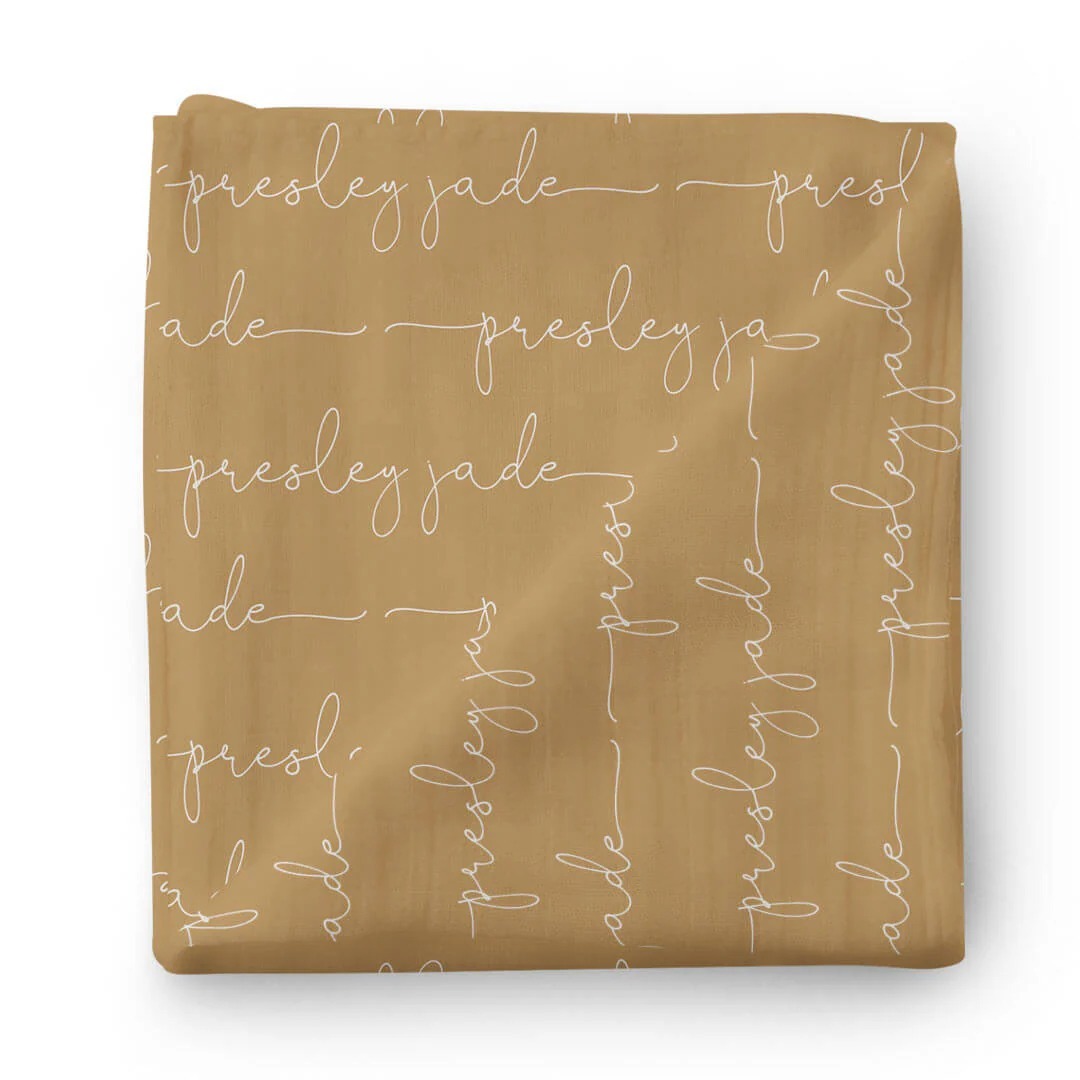 presley jade presl
ade presley ja
presley jade
ade
presl
ade
presley ja
ade pres
presley jade
ade presley jade